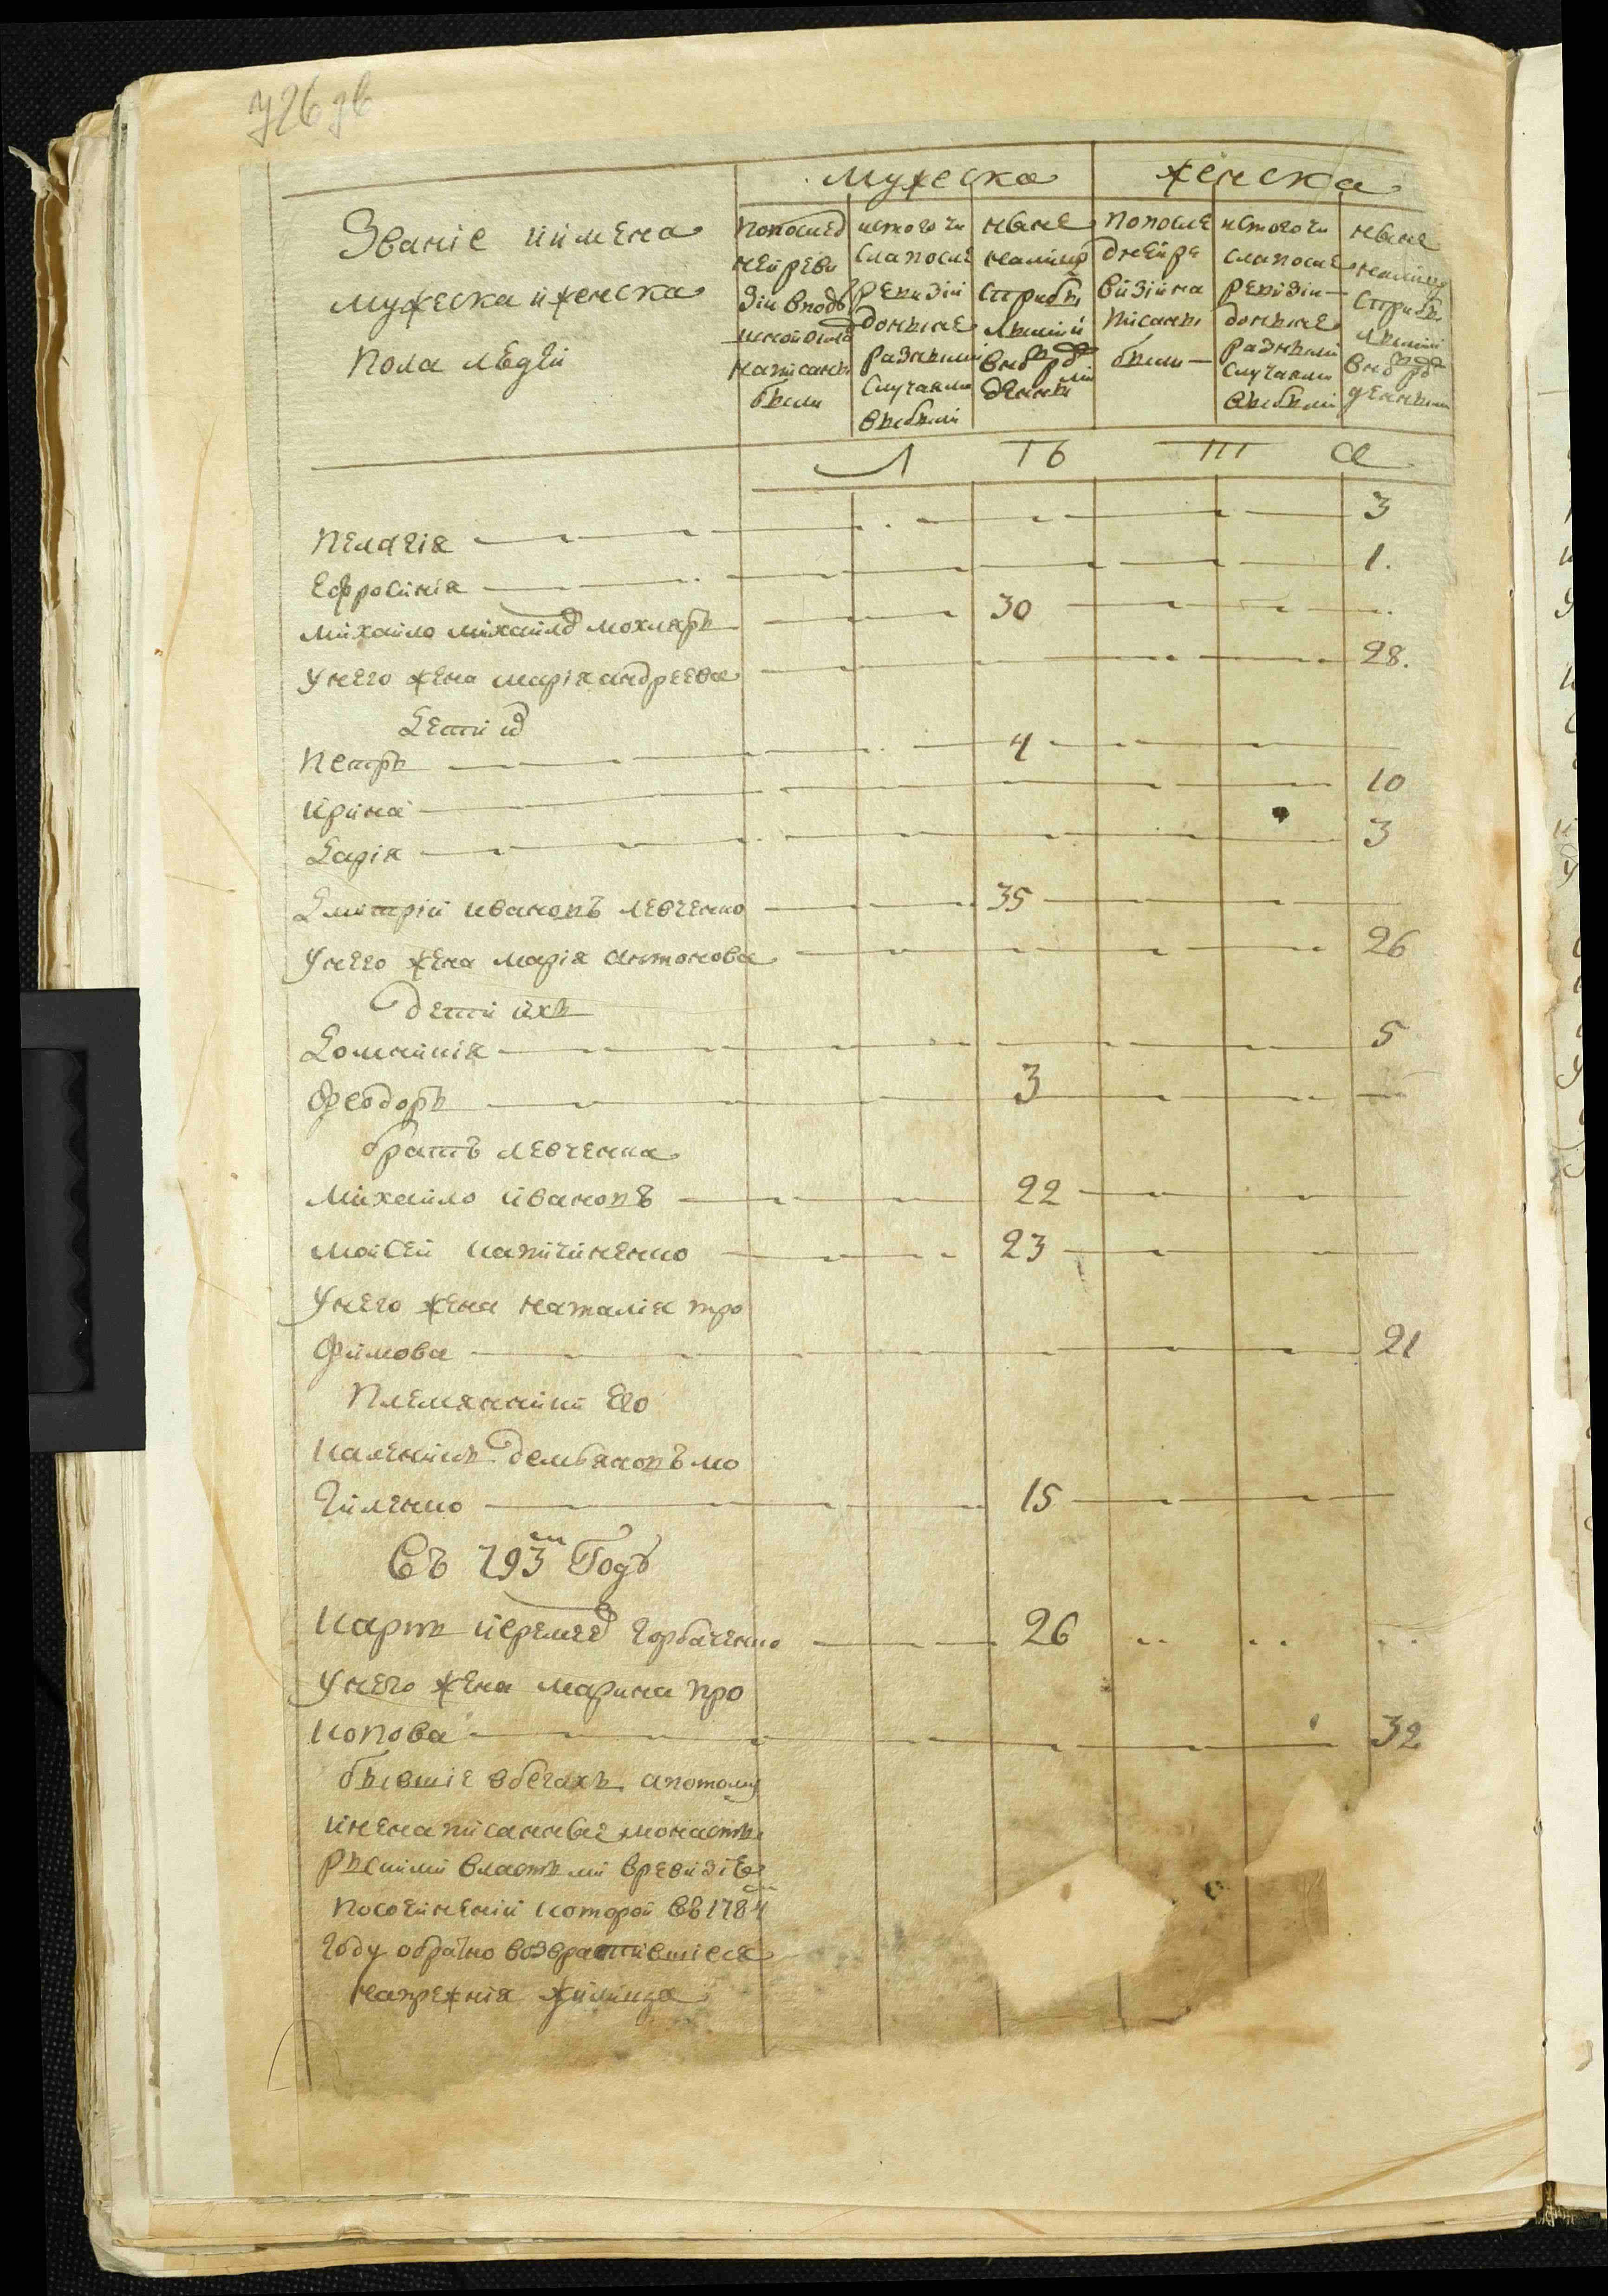 726 зв
мужеска женска
Званіе иимена
мужеска иженска
пола людей
попослед
ней реви
зіи вподу
шной окла
написаны
были
истого чи
сла после
ревизіи
доныне
разными
случаями
выбыли
ныне
налицо
с прибы
лыми и
вновь ро
жденны
ми
попосле
дней ре
визіи на
писаны
были
истого чи
сла после
ревизіи
доныне
разными
случаями
выбыли
ныне
налицо
с прибы
лыми
вновь ро
жденным
Л Ѣ Т А
Пелагія 3
Ефросинія 1.
михайло михайлов 30
унего жена марія андреева 28.
Дети их
Петръ 4
Ирина 10
Дарія 3
Дмитрій ивановъ левченко 35
унего жена марія антонова 26
дети ихъ
Домникія 5
Феодоръ 3
братъ левченка
михайло ивановъ 22
мойсей капичиненко 23
унего жена наталія тро
фимова 21
племянники Его
каленикъ демьяновъ мо
гиленко 15
Съ 793 году
карпъ иеремее горбаченко 26
унего жена марина про
копова 32
бывшіе вбегахъ апотому
иненаписанные монасты
рскими властьми вревизію
посочиненіи которой въ 1784
году обратно возвратившіеся
напрежнія жилища